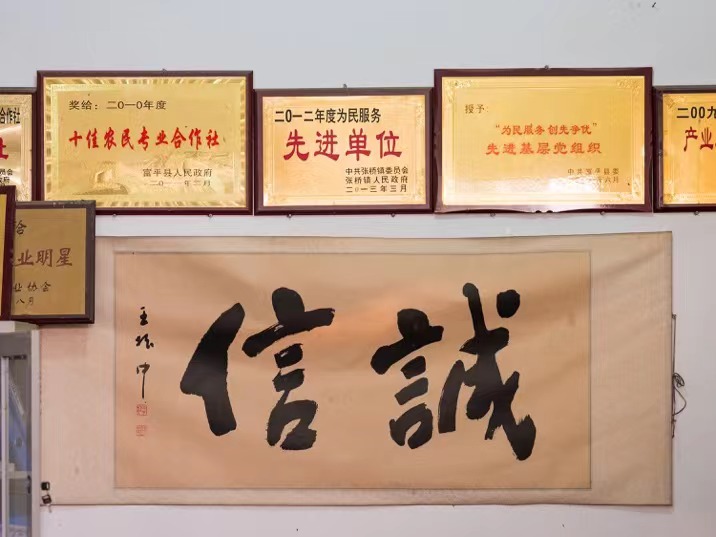 合作社
社
府
月
奖给：二〇一〇年度
十佳农民专业合作社
富平县人民政府
二〇一一年三月
二〇一二年度为民服务
先进单位
中共张桥镇委员会
张桥镇人民政府
二〇一三年三月
授予
“为民服务 创先争优”
先进基层党组织
中共富平县委
六月
二00九
产业
业明星
业协会
八月
誠信